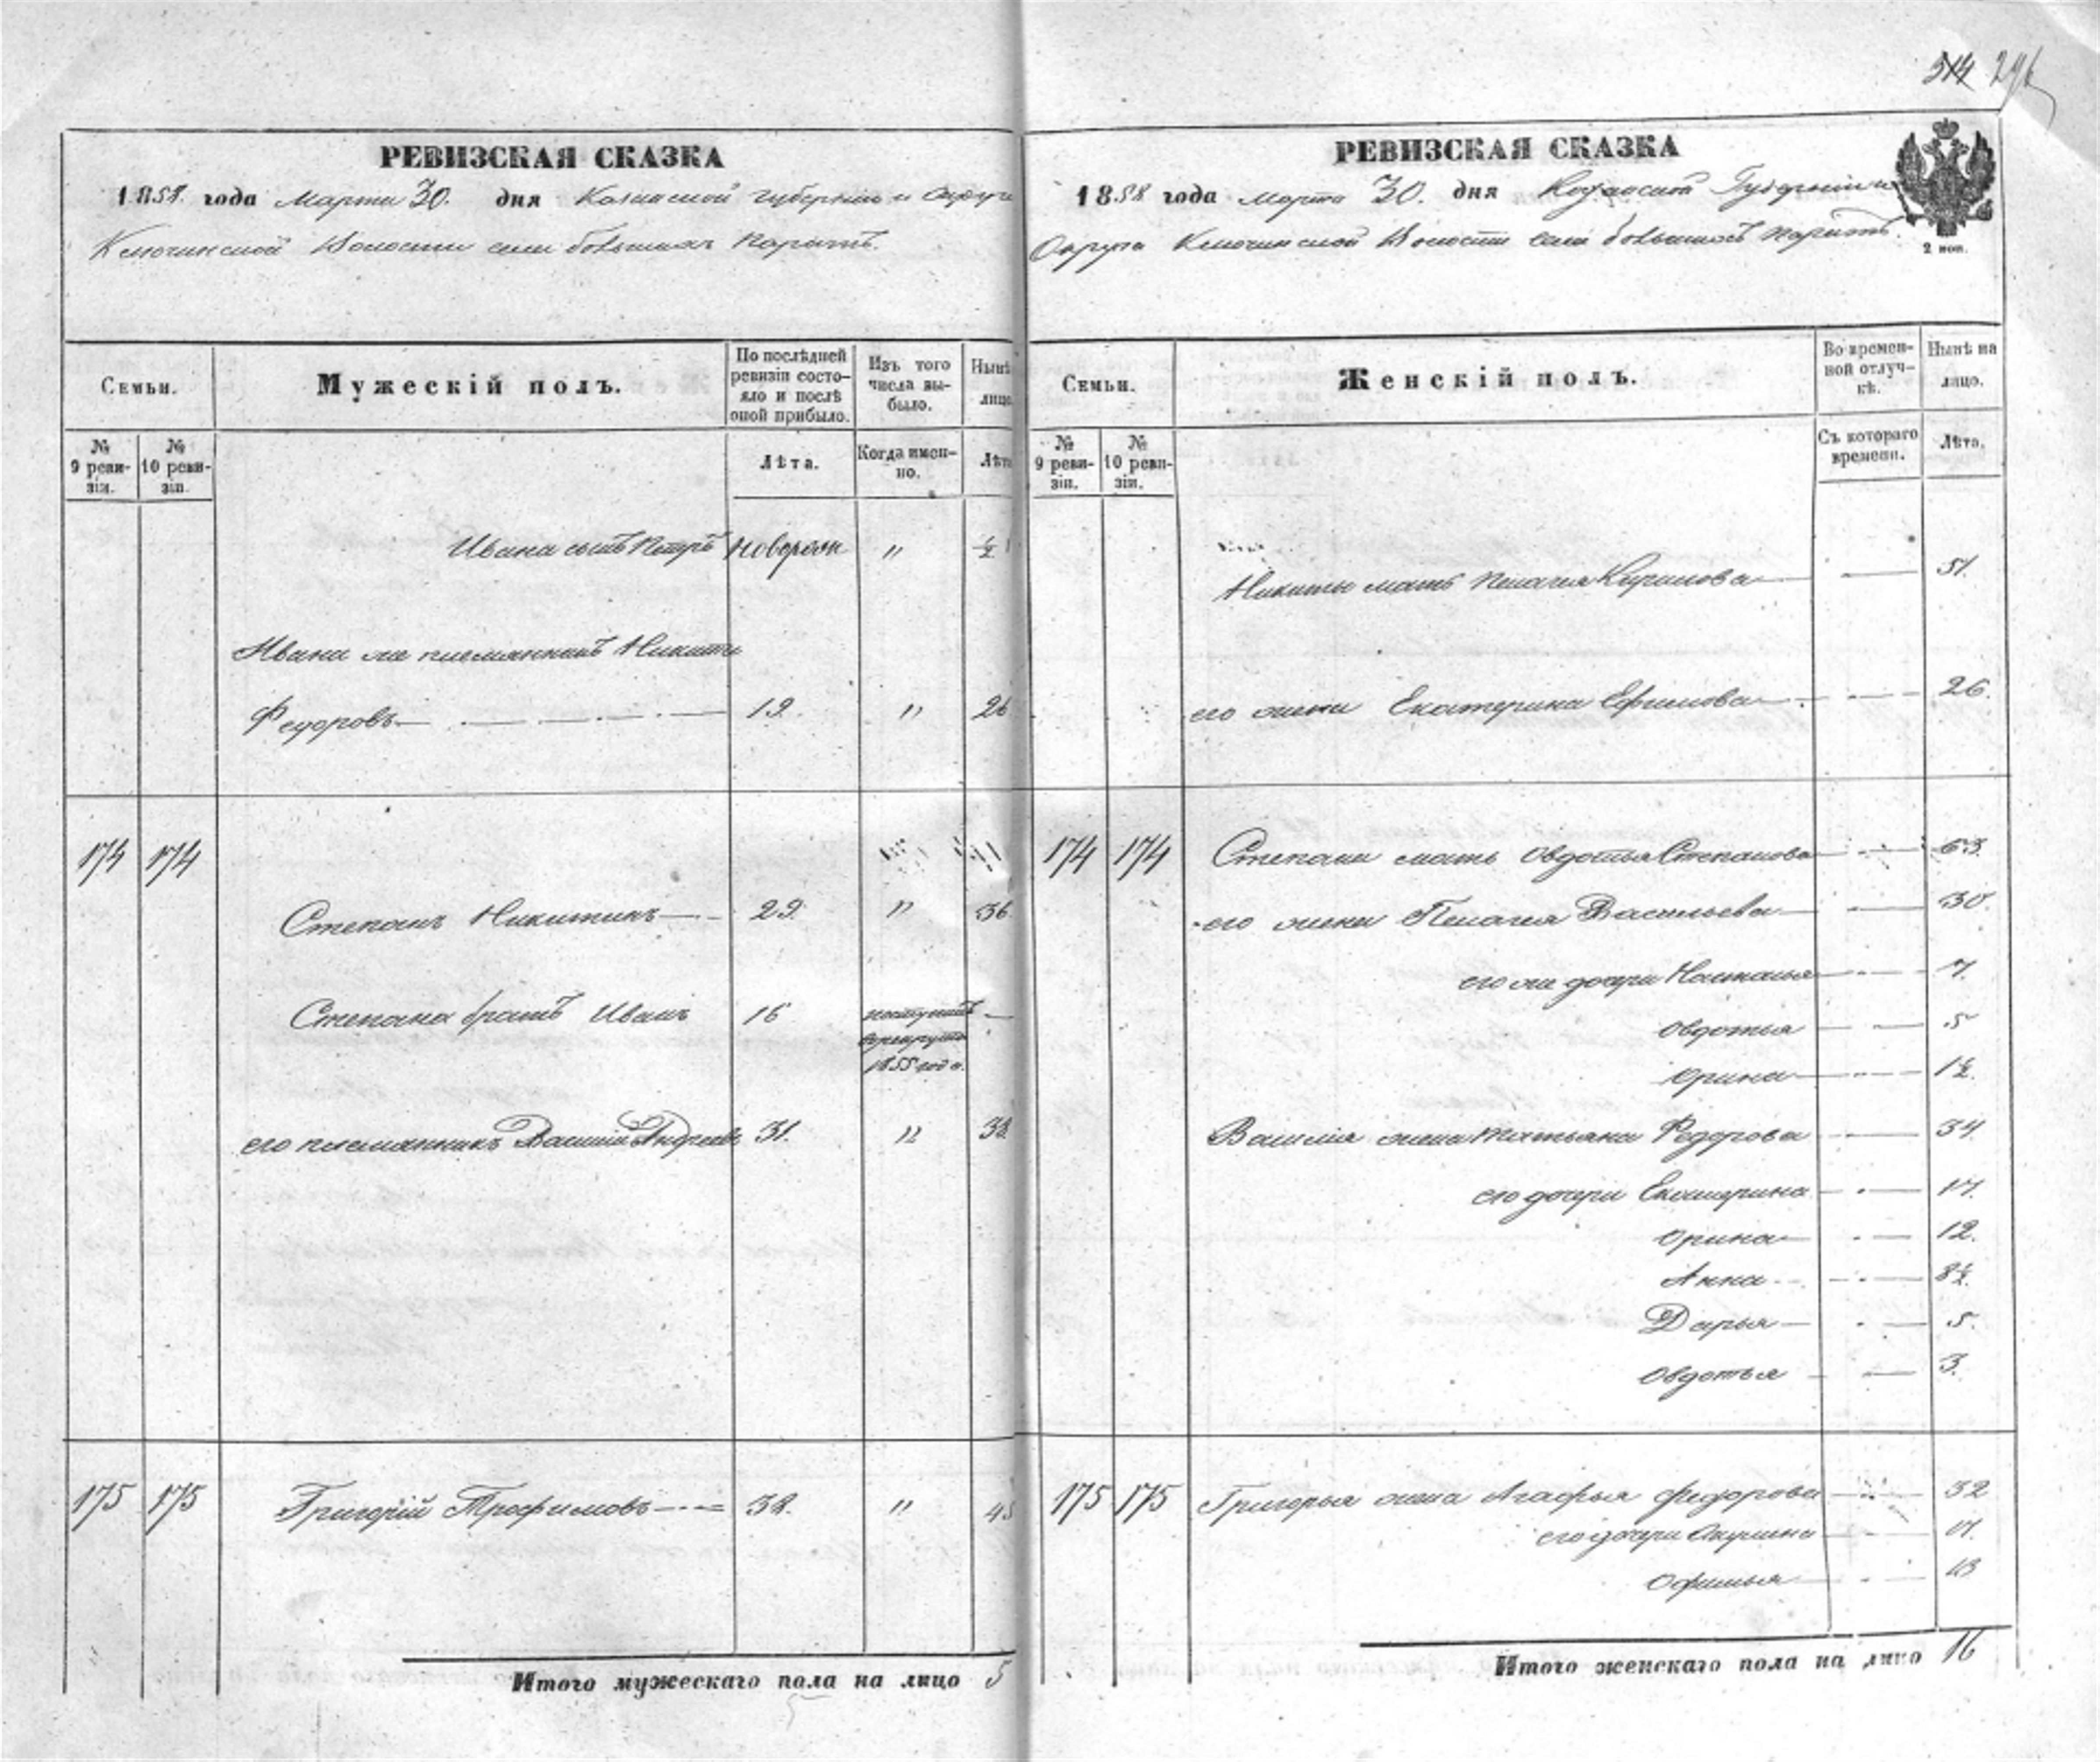 514 296
РЕВИЗСКАЯ СКАЗКА
1858. года Марта 30. дня Казанской губернии и Округи
Ключинской Волости села большихъ Каратъ.
Семьи.
Мужескій полъ.
По послѣдней ревизіи состояло и послѣ оной прибыло.
Изъ того числа выбыло.
Нынѣ лицо
№ 9 ревизіи.
№ 10 ревизіи.
Лѣта.
Когда именно.
Лѣта
Ивана сынъ Петръ новорож " ½
Ивана же племянникъ Никита
Федоровъ 19. " 26
174 174
Степанъ Никитинъ 29. " 36
Степана братъ Иванъ 16 поступилъ
врекруты
1855 года.
его племянникъ Василий Андреевъ 31. " 38
175 175 Григорій Трофимовъ 38. " 45
Итого мужескаго пола на лицо 5
РЕВИЗСКАЯ СКАЗКА
1858 года марта 30. дня Казанской Губернии и
Округа Ключинской Волости села большихъ Каратъ.
2 коп.
Семьи.
Женскій полъ.
Во временной отлучкѣ.
Нынѣ на лицо.
№ 9 ревизіи.
№ 10 ревизіи.
Съ котораго времени.
Лѣта.
Никиты мать Пелагея Кирилова 51.
его жена Екатерина Ефимова 26.
174 174 Степана мать Овдотья Степанова 63.
его жена Пелагея Васильева 30.
его же дочери Наталья 7.
Овдотья 5
Орина 1½.
Василия жена Татьяна Федорова 34.
его дочери Екатерина 17.
Орина 12.
Анна 8½.
Дарья 5.
Овдотья 3.
175 175 Григорья жена Агафья Федорова 32
его дочери Акулина 17.
Офимья 13
Итого женскаго пола на лицо 16